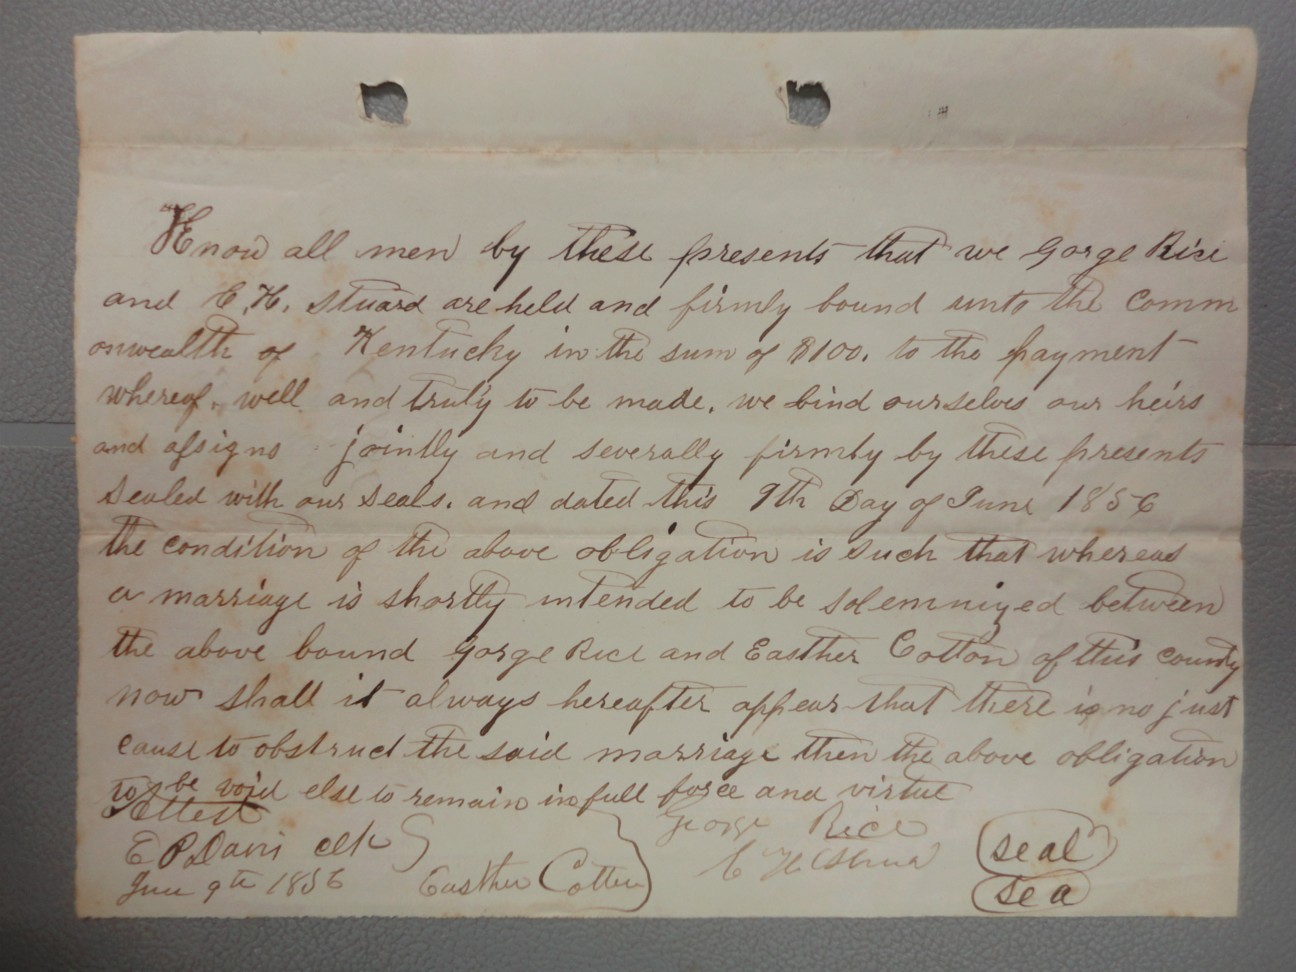 Know all men by these presents that we Gorge Rice
and E. H. Stuard are held and firmly bound unto the Comm
onwealth of Kentucky in the sum of $100. to the payment
whereof, well and truly to be made, we bind ourselves our heirs
and assigns jointly and severally firmly by these presents
Sealed with our Seals. and dated this 9th Day of June 1856
the condition of the above obligation is such that whereas
a marriage is shortly intended to be solemnized between
the above bound Gorge Rice and Easther Cotton of this county
now shall it always hereafter appear that there is no just
cause to obstruct the said marriage then the above obligation
to be void else to remain in full force and virtue
Attest
George Rice seal
E P. Davis clk
E H Stuard sea
June 9th 1856 Easther Cotton